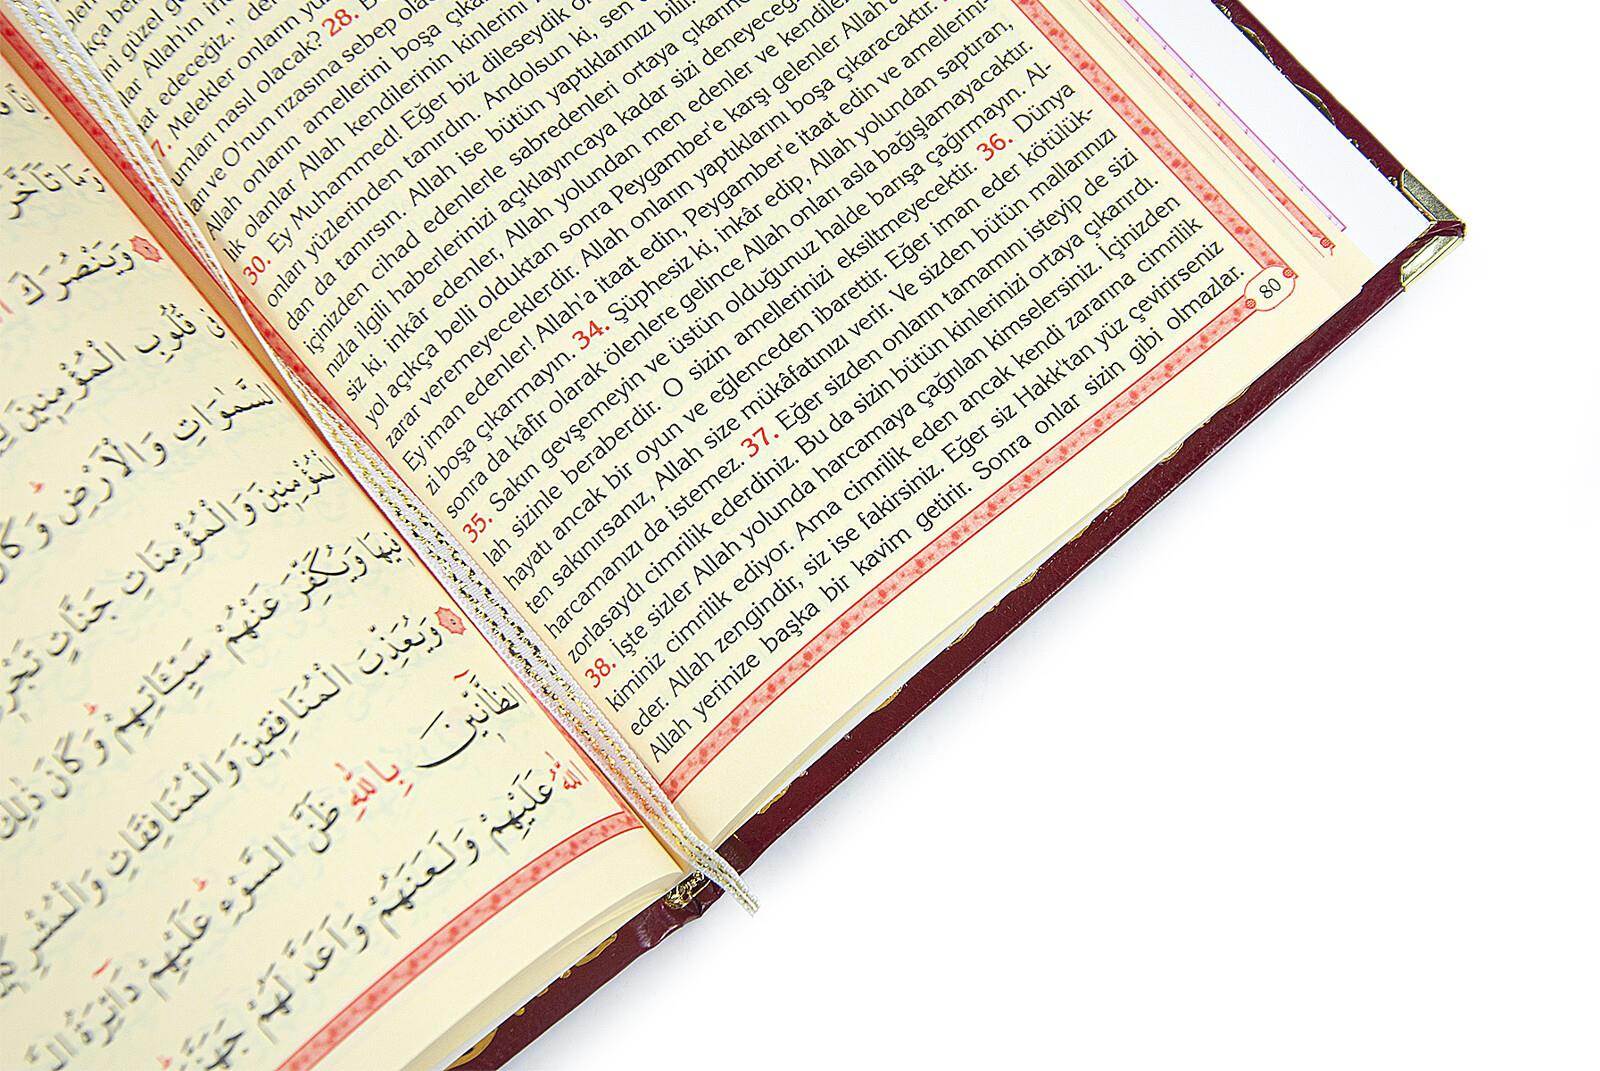 28.
güzel
Allah'ın
edeceğiz."
Melekler onların
nasıl olacak?
ve O'nun rızasına sebep
Allah onların amellerini boşa
olanlar Allah kendilerinin kinlerini
30. Ey Muhammed! Eğer biz dileseydik
onları yüzlerinden tanırdın. Andolsun ki, sen
dan da tanırsın. Allah ise bütün yaptıklarınızı bilir.
içinizden cihad edenlerle sabredenleri ortaya
nızla ilgili haberlerinizi açıklayıncaya kadar sizi deneyeceğ
siz ki, inkâr edenler, Allah yolundan men edenler ve kendilerin
yol açıkça belli olduktan sonra Peygamber'e karşı gelenler Allah'a
zarar veremeyeceklerdir. Allah onların yaptıklarını boşa çıkaracaktır.
Ey iman edenler! Allah'a itaat edin, Peygamber'e itaat edin ve amellerini-
zi boşa çıkarmayın. 34. Şüphesiz ki, inkâr edip, Allah yolundan saptıran,
sonra da kâfir olarak ölenlere gelince Allah onları asla bağışlamayacaktır.
35. Sakın gevşemeyin ve üstün olduğunuz halde barışa çağırmayın. Al-
lah sizinle beraberdir. O sizin amellerinizi eksiltmeyecektir. 36. Dünya
hayatı ancak bir oyun ve eğlenceden ibarettir. Eğer iman eder kötülük-
ten sakınırsanız, Allah size mükâfatınızı verir. Ve sizden bütün mallarınızı
harcamanızı da istemez. 37. Eğer sizden onların tamamını isteyip de sizi
zorlasaydı cimrilik ederdiniz. Bu da sizin bütün kinlerinizi ortaya çıkarırdı.
38. İşte sizler Allah yolunda harcamaya çağrılan kimselersiniz. İçinizden
kiminiz cimrilik ediyor. Ama cimrilik eden ancak kendi zararına cimrilik
eder. Allah zengindir, siz ise fakirsiniz. Eğer siz Hakk'tan yüz çevirirseniz
Allah yerinize başka bir kavim getirir. Sonra onlar sizin gibi olmazlar.
80
وَمَا تَأَخَّرَ
وَيَنْصُرَكَ
قُلُوبِ الْمُؤْمِنِينَ
السَّمٰوَاتِ وَالْاَرْضِ
الْمُؤْمِنِينَ وَالْمُؤْمِنَاتِ جَنَّاتٍ
وَيُكَفِّرَ عَنْهُمْ سَيِّـَٔاتِهِمْ وَكَانَ ذٰلِكَ
وَيُعَذِّبَ الْمُنَافِقِينَ وَالْمُنَافِقَاتِ
الظَّٓانِّينَ بِاللّٰهِ ظَنَّ السَّوْءِ عَلَيْهِمْ دَٓائِرَةُ
اللّٰهُ عَلَيْهِمْ وَلَعَنَهُمْ وَاَعَدَّ لَهُمْ